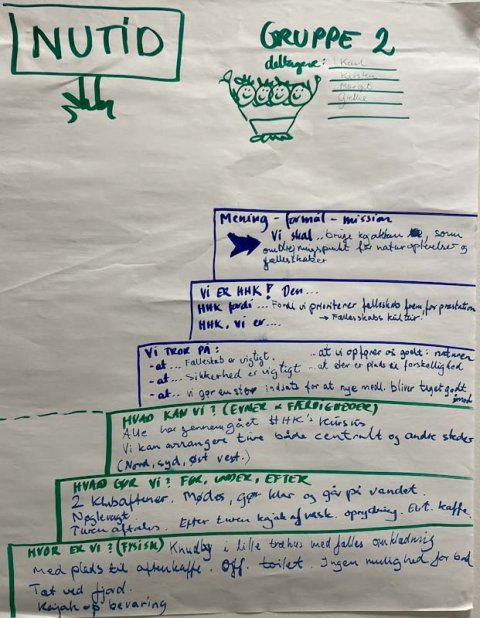 NUTID
GRUPPE 2
deltagere: Karl
Kirsten
Margit
Grethe
Mening - formål - mission
Vi skal .. bruge kajakken, som
omdrejningspunkt for naturoplevelser og
fællesskaber
Vi ER HHK! Den...
HHK fordi ... Fordi vi prioriterer fællesskab frem for præstation
HHK, vi er.... → Fællesskabs kultur.
Vi TROR PÅ:
-at... Fællesskab er vigtigt. ...at vi opfører os godt i naturen
-at... Sikkerhed er vigtigt ...at der er plads til forskellighed
-at... vi gør en stor indsats for at nye medl. bliver taget godt
imod
HVAD KAN VI? (EVNER & FÆRDIGHEDER)
Alle har gennemgået HHK's kursus
Vi kan arrangere ture både centralt og andre steder
(Nord, syd, øst vest.)
HVAD GØR VI? FØR, UNDER, EFTER
2 klubaftener. Mødes, gør klar og går på vandet.
Nøglevagt.
Turen aftales. Efter turen kajak afvask. oprydning. Evt. kaffe.
HVOR ER VI? (FYSISK) Knudby i lille træhus med fælles omklædning
Med plads til aftenkaffe. Off. toilet. Ingen mulighed for bad
Tæt ved fjord.
Kajak opbevaring